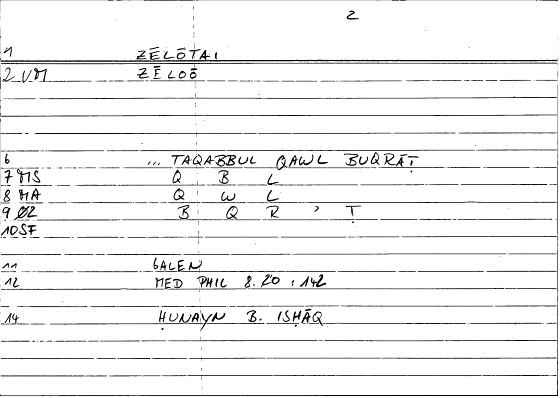 2
1 ZĒLŌTAI
2 VM ZĒLOŌ
6 ... TAQABBUL QAWL BUQRĀṬ
7 MS Q B L
8 MA Q W L
9 Ø2 B Q R ' Ṭ
10 SF
11 GALEN
12 MED PHIL 8.20 : 142
14 ḤUNAYN B. ISḤĀQ